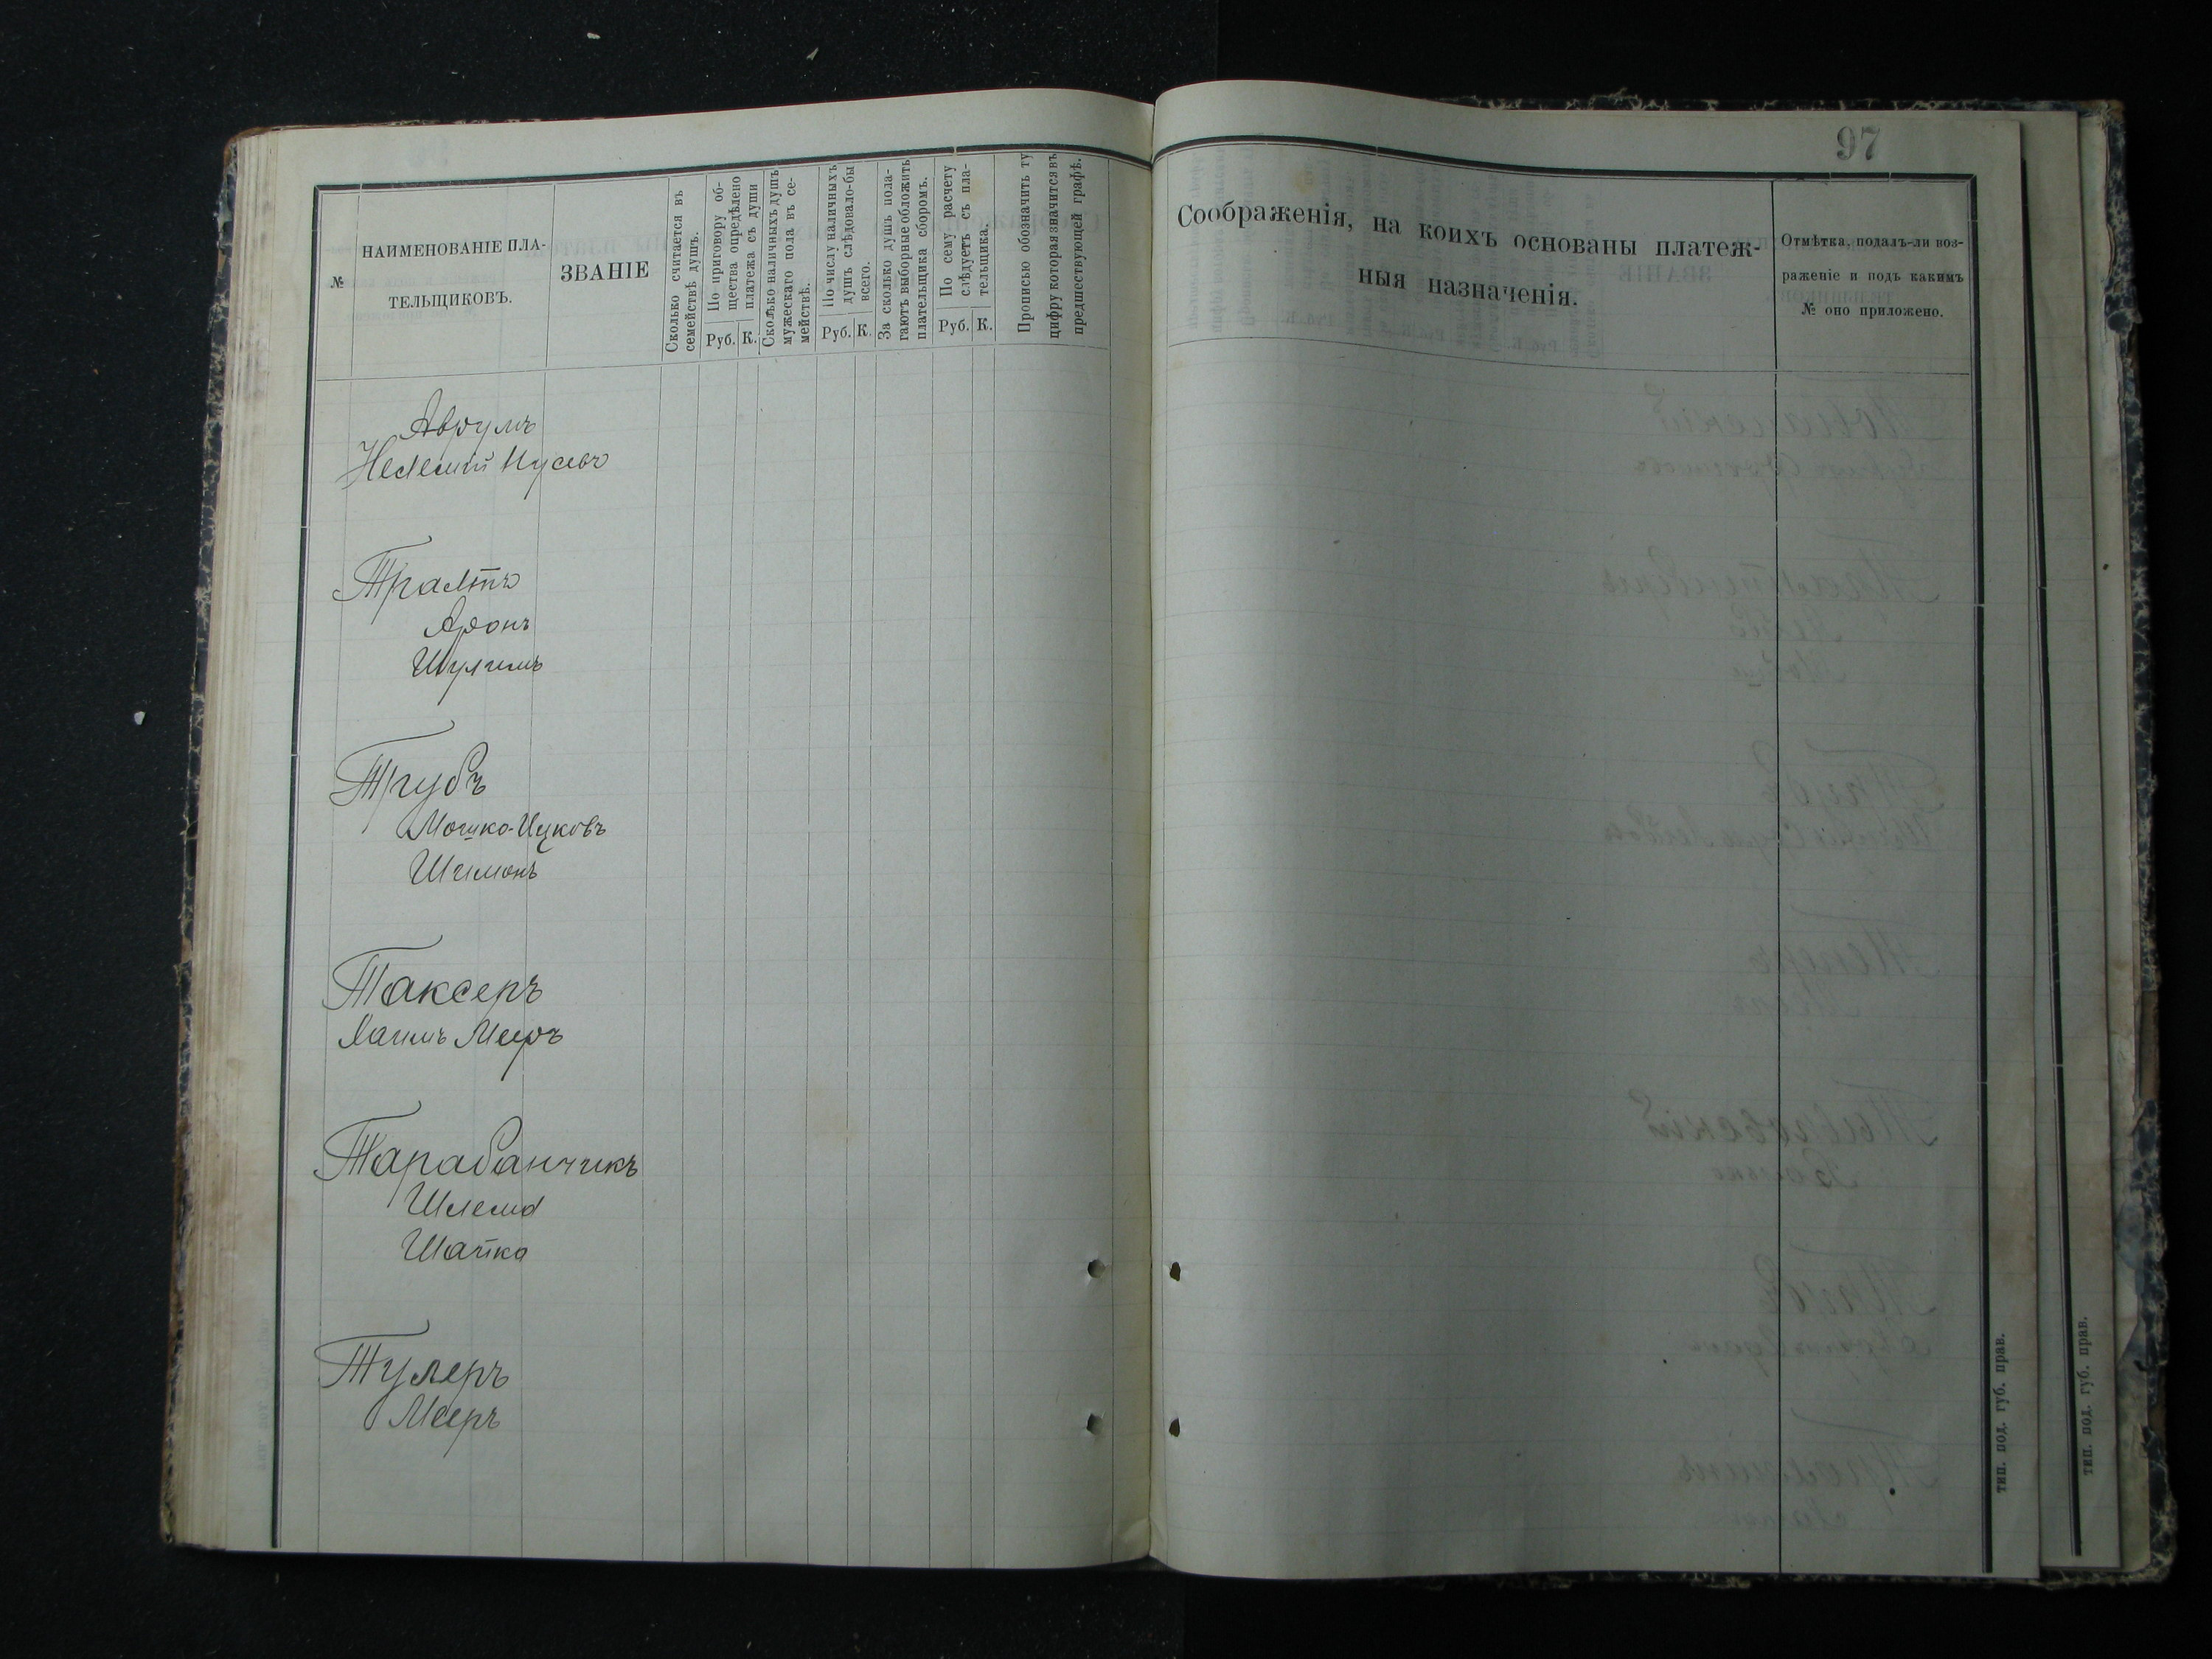 97
№
НАИМЕНОВАНІЕ ПЛА-
ТЕЛЬЩИКОВЪ.
ЗВАНІЕ
Сколько считается въ
семействѣ душъ.
По приговору об-
щества опредѣлено
платежа съ души
Руб. К.
Сколько наличныхъ душъ
мужескаго пола въ се-
мействѣ.
По числу наличныхъ
душъ слѣдовало-бы
всего.
Руб. К.
За сколько душъ пола-
гаютъ выборные обложить
плательщика сборомъ.
По сему расчету
слѣдуетъ съ пла-
тельщика.
Руб. К.
Прописью обозначить ту
цифру которая значится въ
предшествующей графѣ.
Соображенія, на коихъ основаны платеж-
ныя назначенія.
Отмѣтка, подалъ-ли воз-
раженіе и подъ какимъ
№ оно приложено.
Аврумъ
Трахтъ
Аронъ
Шулимъ
Трубъ
Мошко-Ицковъ
Шимонъ
Таксеръ
Хаимъ Мееръ
Тарабанчикъ
Шлема
Шайка
Тулеръ
Мееръ
тип. под. губ. прав.
тип. под. губ. прав.